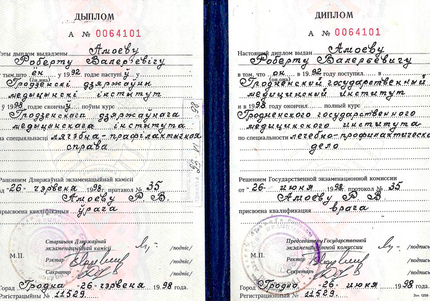 ДЫПЛОМ
А № 0064101
Гэты дыплом выдадзены Амоеву
Роберту Валер'евічу
у тым, што ён у 1992 годзе паступіў у
Гродзенскі дзяржаўны
медыцынскі інстытут
і ў 1998 годзе скончыў поўны курс
Гродзенскага дзяржаўнага
медыцынскага інстытута
па спецыяльнасці лячэбна-прафілактычная
справа
Рашэннем Дзяржаўнай экзаменацыйнай камісіі
ад «26» чэрвеня 1998 г. пратакол № 35
Амоеву Р. В.
прысвоена кваліфікацыя ўрача
Старшыня Дзяржаўнай
экзаменацыйнай камісіі /подпіс/
Рэктар /подпіс/
М.П. Сакратар /подпіс/
Горад Гродна «26» чэрвеня 1998 г.
Рэгістрацыйны № 22529
ДИПЛОМ
А № 0064101
Настоящий диплом выдан Амоеву
Роберту Валериевичу
в том, что он в 1992 году поступил в
Гродненский государственный
медицинский институт
и в 1998 году окончил полный курс
Гродненского государственного
медицинского института
по специальности лечебно-профилактическое
дело
Решением Государственной экзаменационной комиссии
от «26» июня 1998 г. протокол № 35
Амоеву Р. В.
присвоена квалификация врача
Председатель Государственной
экзаменационной комиссии /подпись/
Ректор /подпись/
М.П. Секретарь /подпись/
Город Гродно «26» июня 1998 г.
Регистрационный № 22529